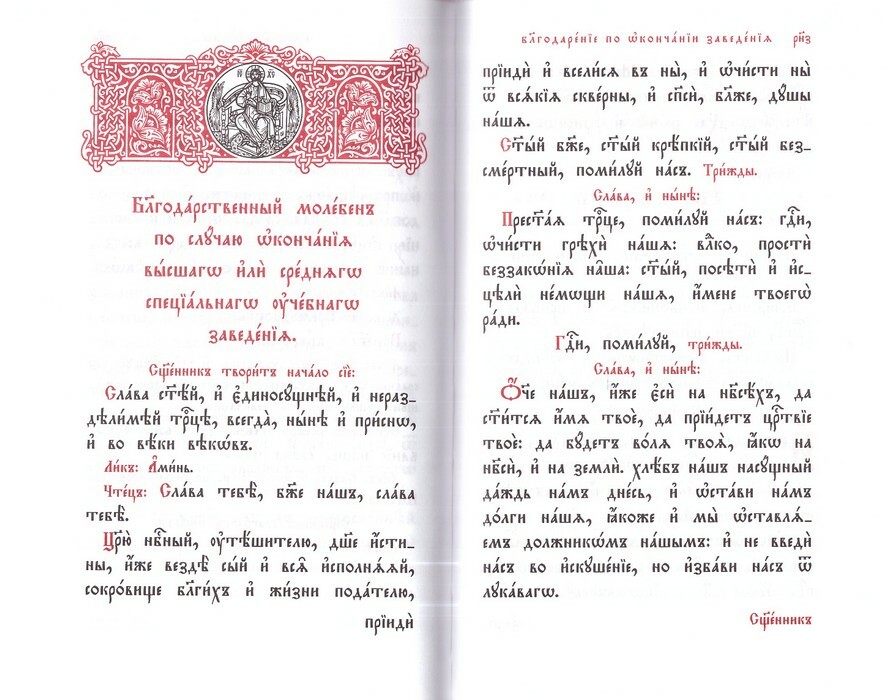 Бл҃года́рственный моле́бенъ
по слꙋ́чаю ѡ҆конча́нїѧ
вы́сшагѡ и҆лѝ сре́днѧгѡ
спецїа́льнагѡ ᲂу҆че́бнагѡ
заведе́нїѧ.
Сщ҃е́нникъ твори́тъ нача́ло сїѐ:
Сла́ва ст҃ѣ́й, и҆ є҆диносꙋ́щнѣй, и҆ нераз-
дѣ́лимѣй трⷪ҇цѣ, всегда̀, ны́нѣ и҆ при́снѡ,
и҆ во вѣ́ки вѣкѡ́въ.
Ли́къ: А҆ми́нь.
Чте́цъ: Сла́ва тебѣ̀, бж҃е на́шъ, сла́ва
тебѣ̀.
Цр҃ю̀ нбⷭ҇ный, ᲂу҆тѣ́шителю, дш҃е и҆́сти-
ны, и҆́же вездѣ̀ сы́й и҆ всѧ̑ и҆сполнѧ́ѧй,
сокро́вище бл҃ги́хъ и҆ жи́зни пода́телю,
прїидѝ
бл҃годаре́нїе по ѡ҆конча́нїи заведе́нїѧ рн҃з
прїидѝ и҆ всели́сѧ въ ны̀, и҆ ѡ҆чи́сти ны̀
ѿ всѧ́кїѧ скве́рны, и҆ сп҃сѝ, бл҃же, дꙋ́шы
на́шѧ.
Ст҃ы́й бж҃е, ст҃ы́й крѣ́пкїй, ст҃ы́й без-
сме́ртный, поми́лꙋй на́съ. Три́жды.
Сла́ва, и҆ ны́нѣ:
Прест҃а́ѧ трⷪ҇це, поми́лꙋй на́съ: гдⷭ҇и,
ѡ҆чи́сти грѣхѝ на́шѧ: влⷣко, простѝ
беззакѡ́нїѧ на̑ша: ст҃ы́й, посѣтѝ и҆ и҆с-
цѣлѝ не́мѡщи на́шѧ, и҆́мене твоегѡ̀
ра́ди.
Гдⷭ҇и, поми́лꙋй, три́жды.
Сла́ва, и҆ ны́нѣ:
Ѻ҆́ч҃е на́шъ, и҆́же є҆сѝ на нб҃сѣ́хъ, да
ст҃и́тсѧ и҆́мѧ твоѐ, да прїи́детъ црⷭ҇твїе
твоѐ: да бꙋ́детъ во́лѧ твоѧ̀, ꙗ҆́кѡ на
нб҃сѝ, и҆ на землѝ. хлѣ́бъ на́шъ насꙋ́щный
да́ждь на́мъ дне́сь, и҆ ѡ҆ста́ви на́мъ
до́лги на́шѧ, ꙗ҆́коже и҆ мы̀ ѡ҆ставлѧ́-
емъ должникѡ́мъ на́шымъ: и҆ не введѝ
на́съ во и҆скꙋше́нїе, но и҆зба́ви на́съ ѿ
лꙋка́вагѡ.
Сщ҃е́нникъ